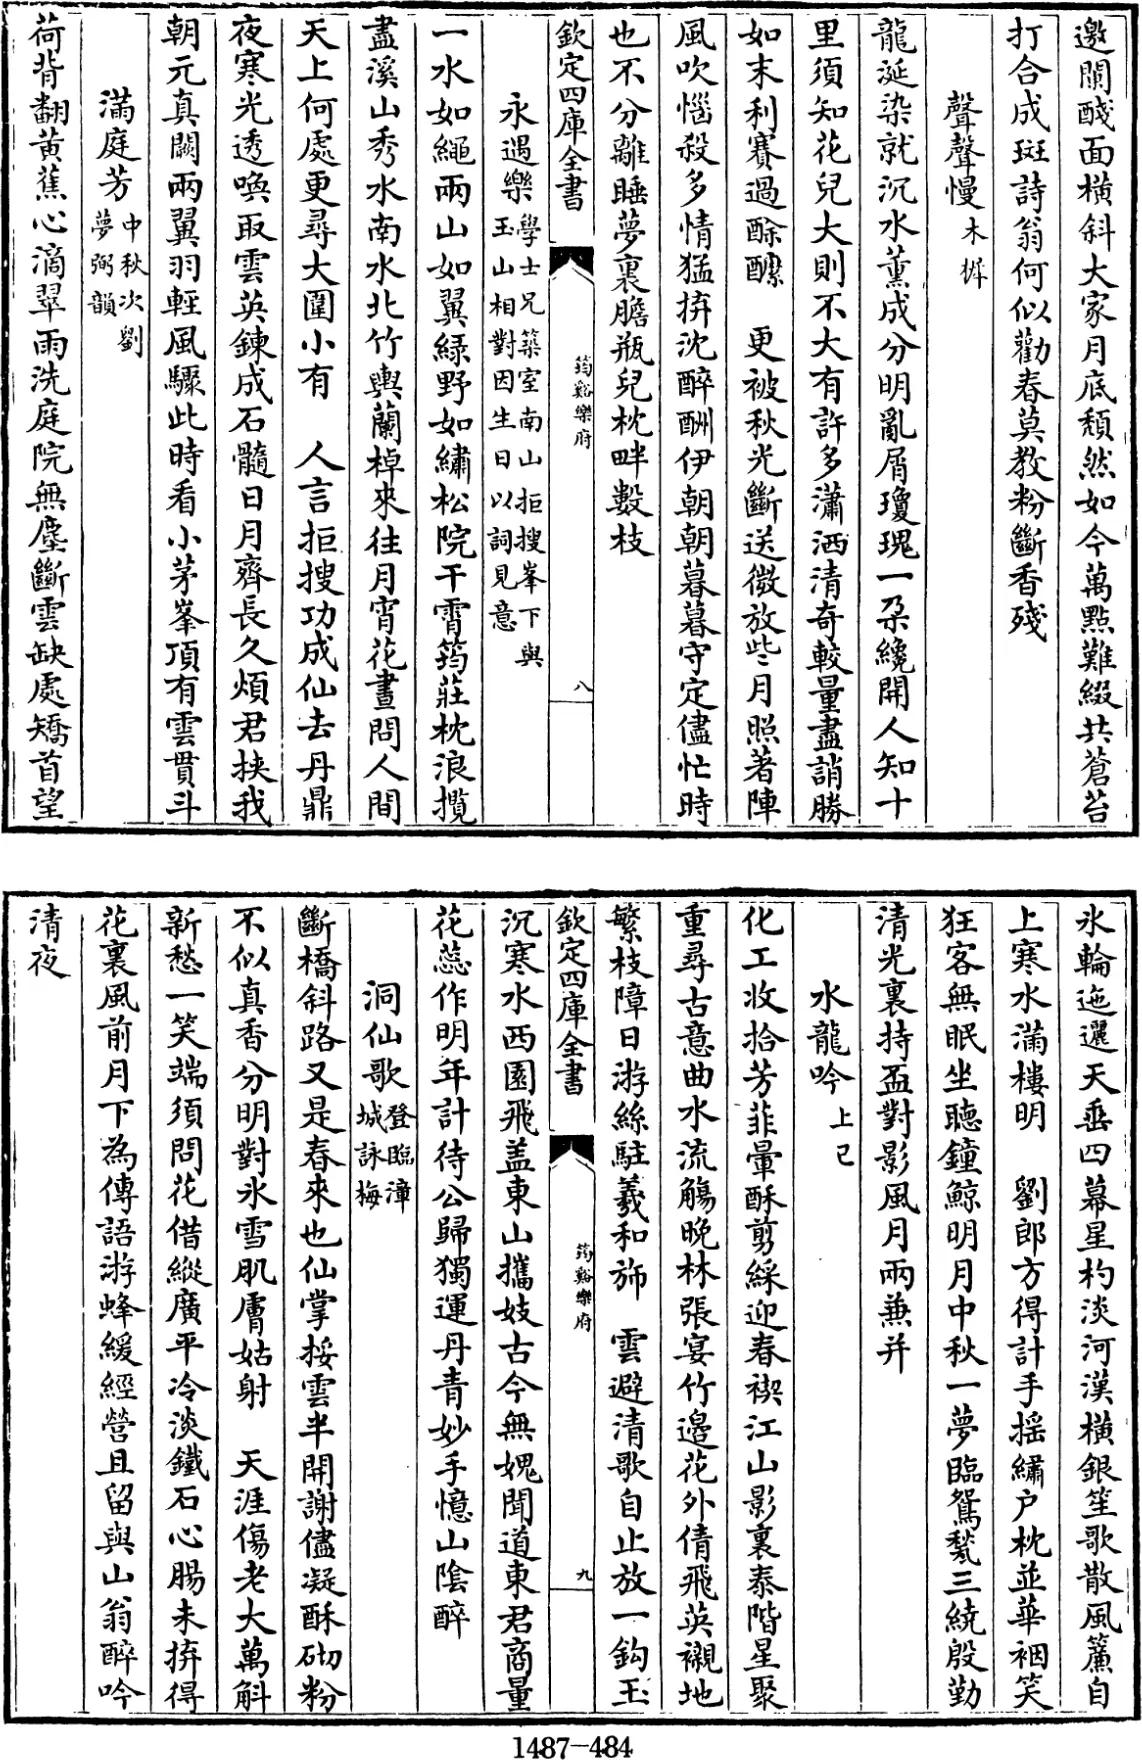 邀闌醆面橫斜大家月底頽然如今萬㸃難綴共蒼苔
打合成斑詩翁何似勸春莫教粉斷香殘
聲聲慢木樨
龍涎染就沉水薰成分明亂屑瓊瑰一朶纔開人知十
里須知花兒大則不大有許多瀟洒清竒較量盡誚勝
如末利賽過酴醿　更被秋光斷送微放些月照著陣
風吹惱殺多情猛拚沈醉酬伊朝朝暮暮守定儘忙時
也不分離睡夢裏膽瓶兒枕畔數枝
欽定四庫全書
筠谿樂府
八
永遇樂學士兄築室南山拒搜峯下與
玉山相對因生日以詞見意
一水如繩兩山如翼緑野如繡松院干霄筠莊枕浪攬
盡溪山秀水南水北竹輿蘭棹來往月宵花晝問人間
天上何處更尋大圍小有　人言拒搜功成仙去丹鼎
夜寒光透喚取雲英鍊成石髓日月齊長久煩君挾我
朝元真闕兩翼羽輕風驟此時看小茅峯頂有雲貫斗
滿庭芳中秋次劉
夢弼韻
荷背翻黄蕉心滴翠雨洗庭院無塵斷雲缺處矯首望
氷輪迤邐天垂四幕星杓淡河漢橫銀笙歌散風簾自
上寒水滿樓明　劉郎方得計手摇繡户枕並華裀笑
狂客無眠坐聴鐘鯨明月中秋一夢臨鴛甃三繞殷勤
清光裏持盃對影風月兩兼并
水龍吟上巳
化工收拾芳菲暈酥剪綵迎春禊江山影裏泰階星聚
重尋古意曲水流觴晚林張宴竹邉花外倩飛英襯地
繁枝障日游絲駐羲和斾　雲避清歌自止放一鈎玉
欽定四庫全書
筠谿樂府
九
沉寒水西園飛盖東山攜妓古今無媿聞道東君商量
花蕊作明年計待公歸獨運丹青妙手憶山隂醉
洞仙歌登臨漳
城詠梅
斷橋斜路又是春來也仙掌挼雲半開謝儘凝酥砌粉
不似真香分明對氷雪肌膚姑射　天涯傷老大萬斛
新愁一笑端須問花借縱廣平冷淡鐵石心腸未拚得
花裏風前月下為傳語游蜂緩經營且留與山翁醉吟
清夜
1487-484